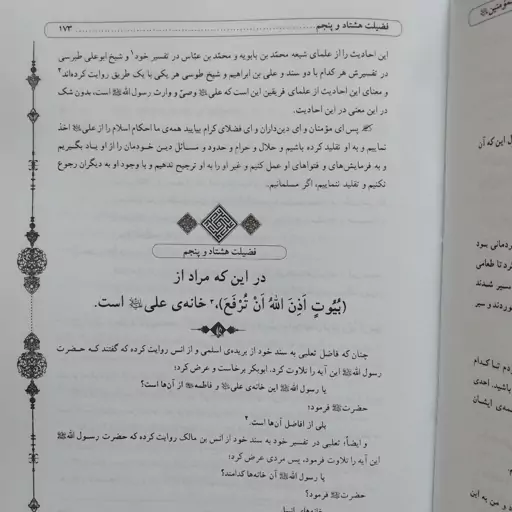 فضیلت هشتاد و پنجم ... ۱۷۳
این احادیث را از علمای شیعه محمّد بن بابویه و محمّد بن عبّاس در تفسیر خود۱ و شیخ ابوعلی طبرسی
در تفسیرش هر کدام با دو سند و علی بن ابراهیم و شیخ طوسی هر یکی با یک طریق روایت کرده‌اند۲
و معنای این احادیث از علمای فریقین این است که علی وصیّ و وارث رسول الله ﷺ است، بدون شک
در این معنی در این احادیث.
پس ای مؤمنان و ای دین‌داران و ای فضلای کرام بیایید همه‌ی ما احکام اسلام را از علی اخذ
نماییم و به او تقلید کرده باشیم و حلال و حرام و حدود و مسائل دین خودمان را از او یاد بگیریم
و به فرمایش‌های و فتواهای او عمل کنیم و غیر او را به او ترجیح ندهیم و با وجود او به دیگران رجوع
نکنیم و تقلید ننماییم، اگر مسلمانیم.
فضیلت هشتاد و پنجم
در این که مراد از
(بُیُوتٍ اَذِنَ اللهُ اَنْ تُرْفَعَ)،۳ خانه‌ی علی است.
چنان که فاضل ثعلبی به سند خود از بریده‌ی اسلمی و از انس روایت کرده که گفتند کـه حضـرت
رسول الله ﷺ این آیه را تلاوت کرد، ابوبکر برخاست و عرض کرد؛
یا رسول الله ﷺ این خانه‌ی علی و فاطمه از آن‌ها است؟
حضرت ﷺ فرمود؛
بلی از افاضل آن‌ها است.۴
و ایضاً، ثعلبی در تفسیر خود به سند خود از انس بن مالک روایت کرده که حضرت رسـول الله ﷺ
این آیه را تلاوت فرمود، پس مردی عرض کرد؛
یا رسول الله ﷺ آن خانه‌ها کدامند؟
حضرت ﷺ فرمود؟
خانه‌های
ل این که آن
ردمانی بـود
کرد تا طعامی
سـیر شـدند
وردند و سیر
ردم تـا کـدام
باشید. احدی
مه‌ی ایشـان
د و من به این